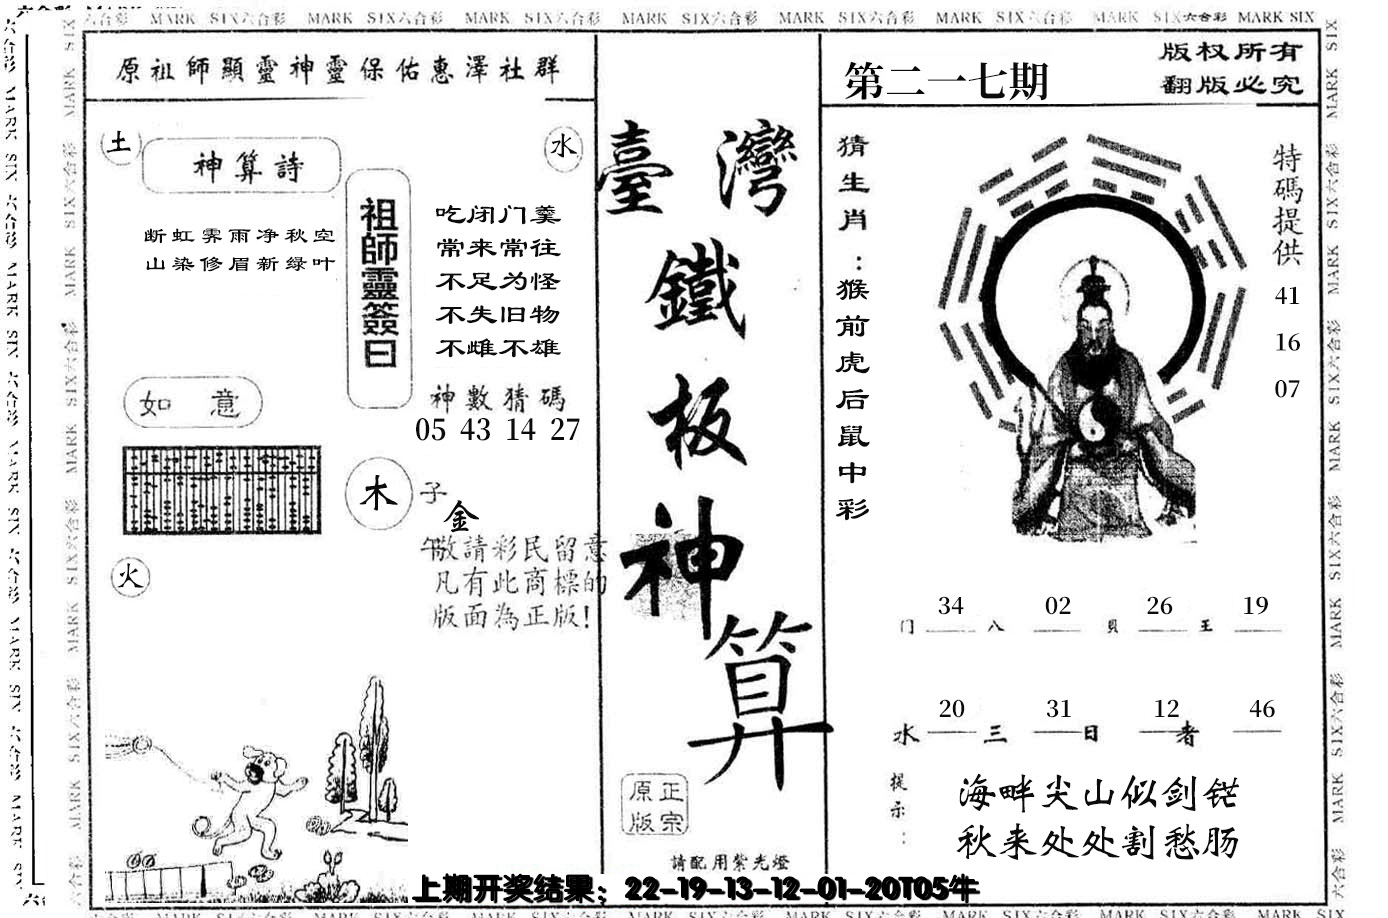 MARK SIX六合彩 MARK SIX六合彩 MARK SIX六合彩 MARK SIX六合彩 MARK SIX六合彩 MARK SIX六合彩 MARK SIX六合彩 MARK SIX六合彩 MARK SIX
原祖師顯靈神靈保佑惠澤社群
土
神算詩
水
断虹霁雨净秋空
山染修眉新绿叶
祖師靈簽曰
吃闭门羹
常来常往
不足为怪
不失旧物
不雌不雄
神數猜碼
05 43 14 27
如 意
木
子
金
午
敬請彩民留意
凡有此商標的
版面為正版!
火
臺灣
鐵
板
神
算
正宗
原版
請配用紫光燈
第二一七期
版权所有
翻版必究
猜生肖:猴前虎后鼠中彩
特碼提供
41
16
07
34 02 26 19
门 八 貝 王
20 31 12 46
水 三 日 者
提示:
海畔尖山似剑铓
秋来处处割愁肠
上期开奖结果：22-19-13-12-01-20T05牛